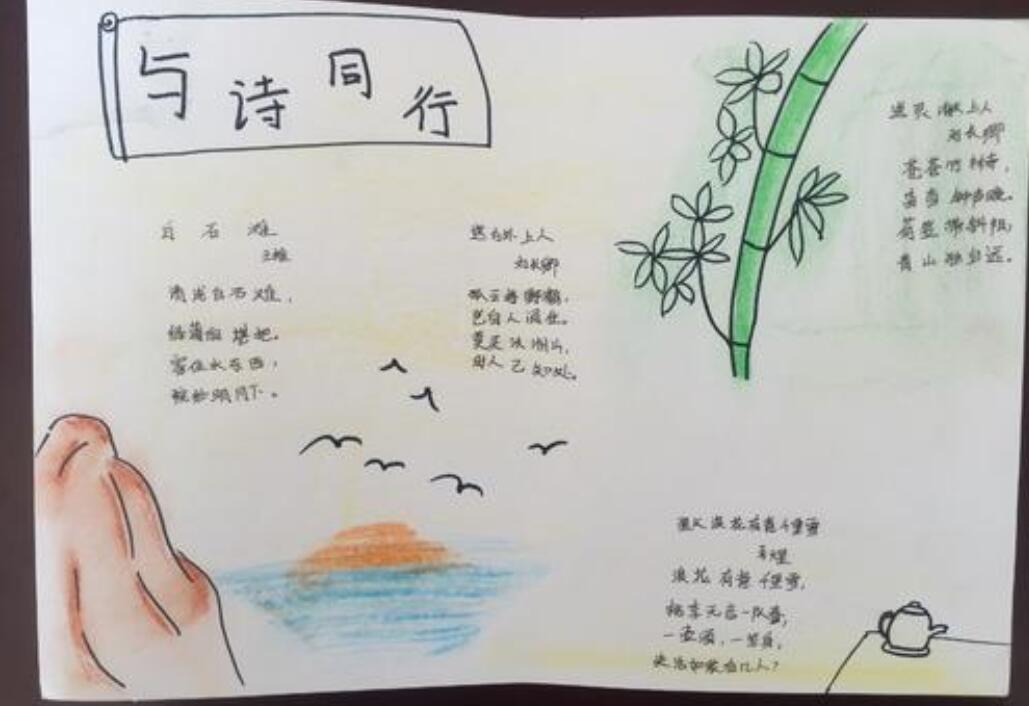 与诗同行
白石滩
王维
清浅白石滩，
绿蒲向堪把。
家住水东西，
浣纱明月下。
送方外上人
刘长卿
孤云将野鹤，
岂向人间住。
莫买沃洲山，
时人已知处。
送灵澈上人
刘长卿
苍苍竹林寺，
杳杳钟声晚。
荷笠带斜阳，
青山独归远。
浪花有意千里雪
李煜
浪花有意千里雪，
桃李无言一队春，
一壶酒，一竿身，
快活如侬有几人？